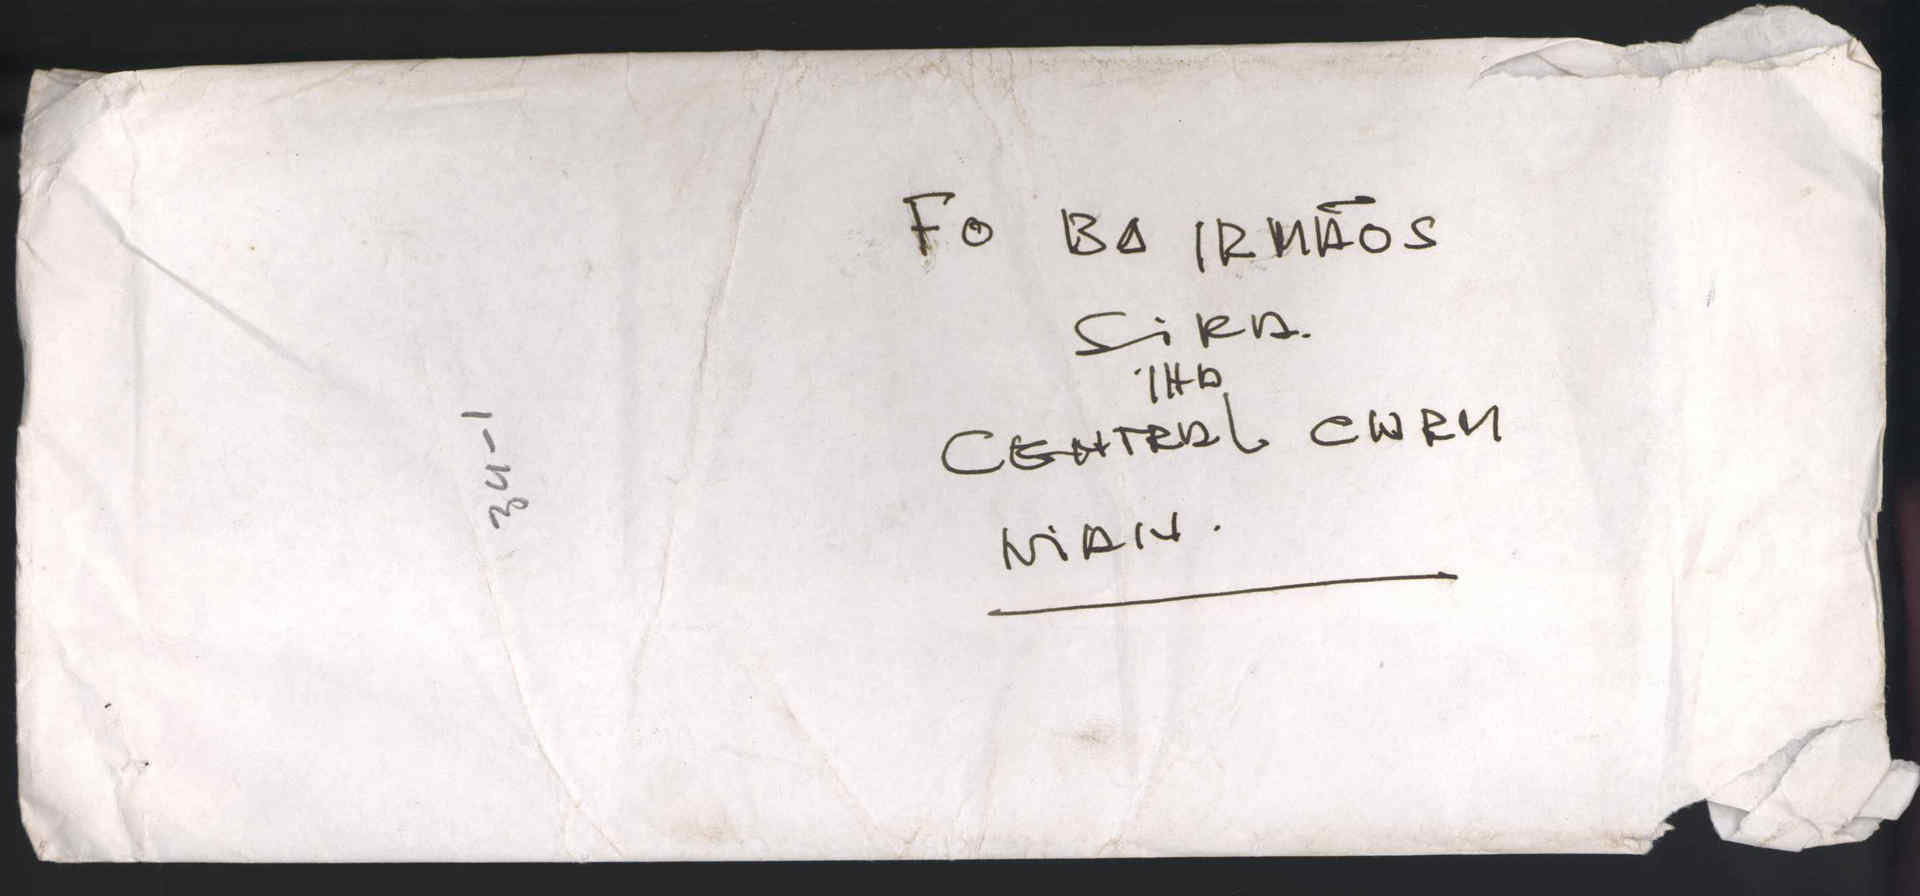 FO BA IRMÃOS
SiRA.
IHA
CENTRAL CWRM
NiAN.